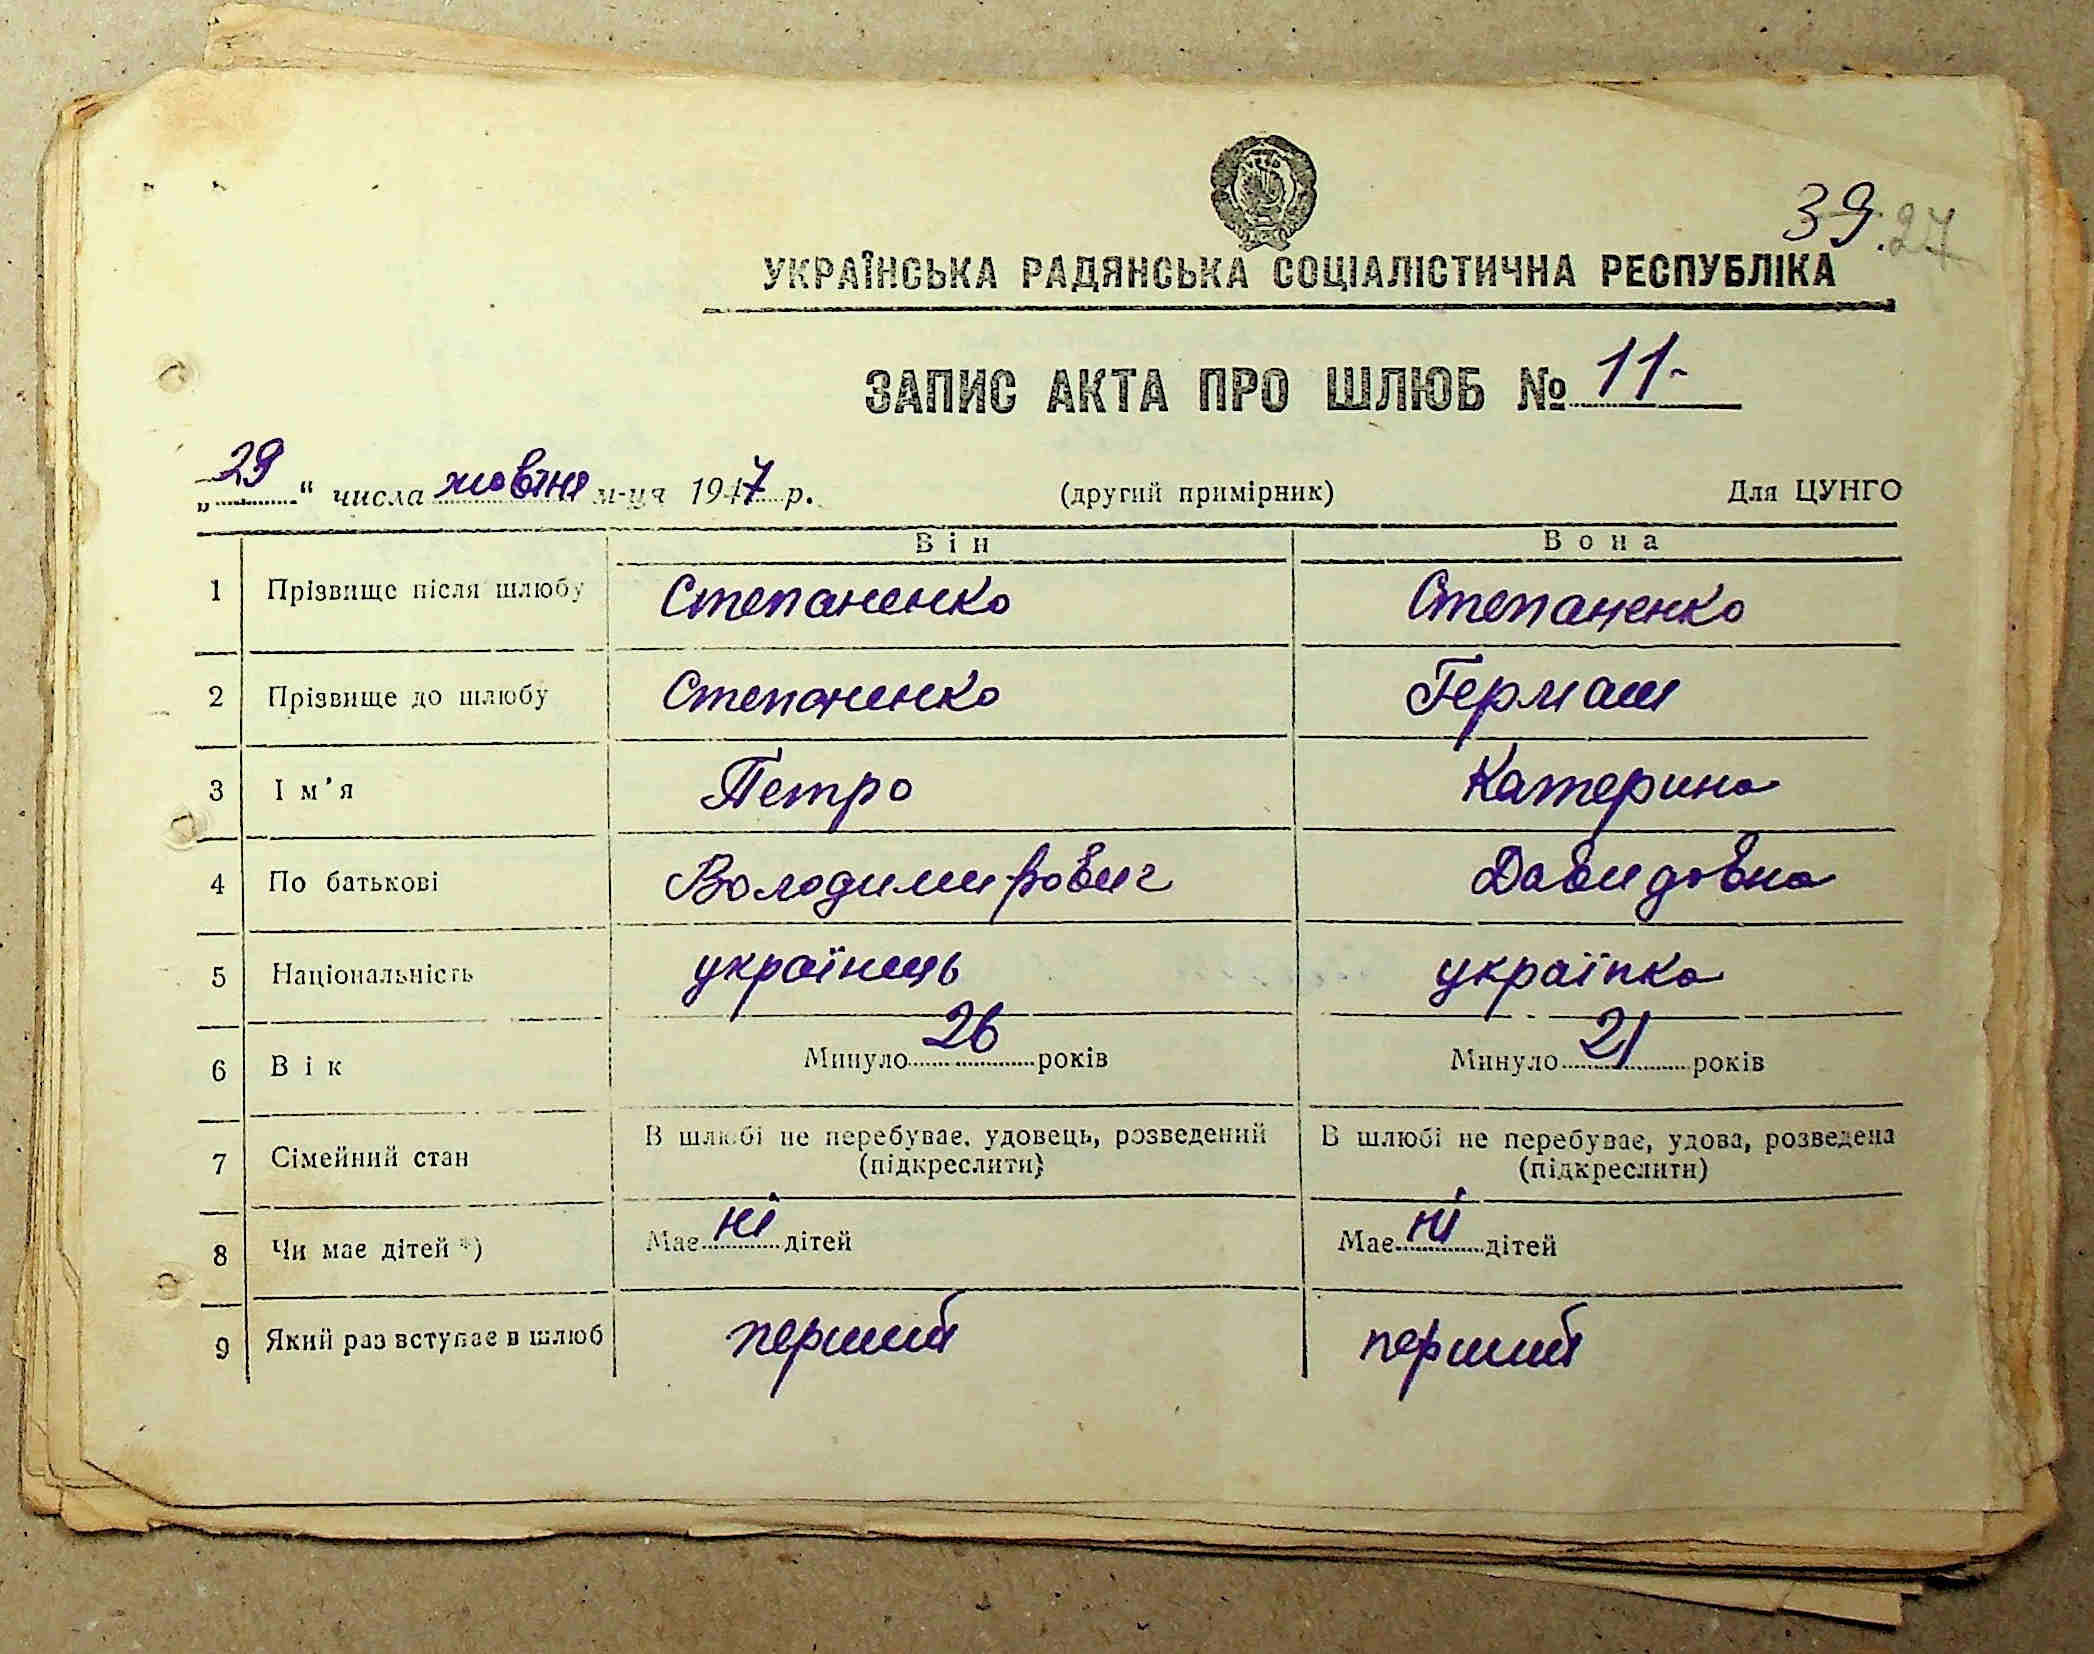 39. 27
УКРАЇНСЬКА РАДЯНСЬКА СОЦІАЛІСТИЧНА РЕСПУБЛІКА
ЗАПИС АКТА ПРО ШЛЮБ № 11-
„29“ числа жовтня м-ця 1947 р. (другий примірник) Для ЦУНГО
Він Вона
1 Прізвище після шлюбу Степаненко Степаненко
2 Прізвище до шлюбу Степаненко Гермаш
3 Ім’я Петро Катерина
4 По батькові Володимирович Давидовна
5 Національність українець українка
6 Вік Минуло 26 років Минуло 21 років
7 Сімейний стан В шлюбі не перебуває, удовець, розведений (підкреслити) В шлюбі не перебуває, удова, розведена (підкреслити)
8 Чи має дітей *) Має ні дітей Має ні дітей
9 Який раз вступає в шлюб перший перший